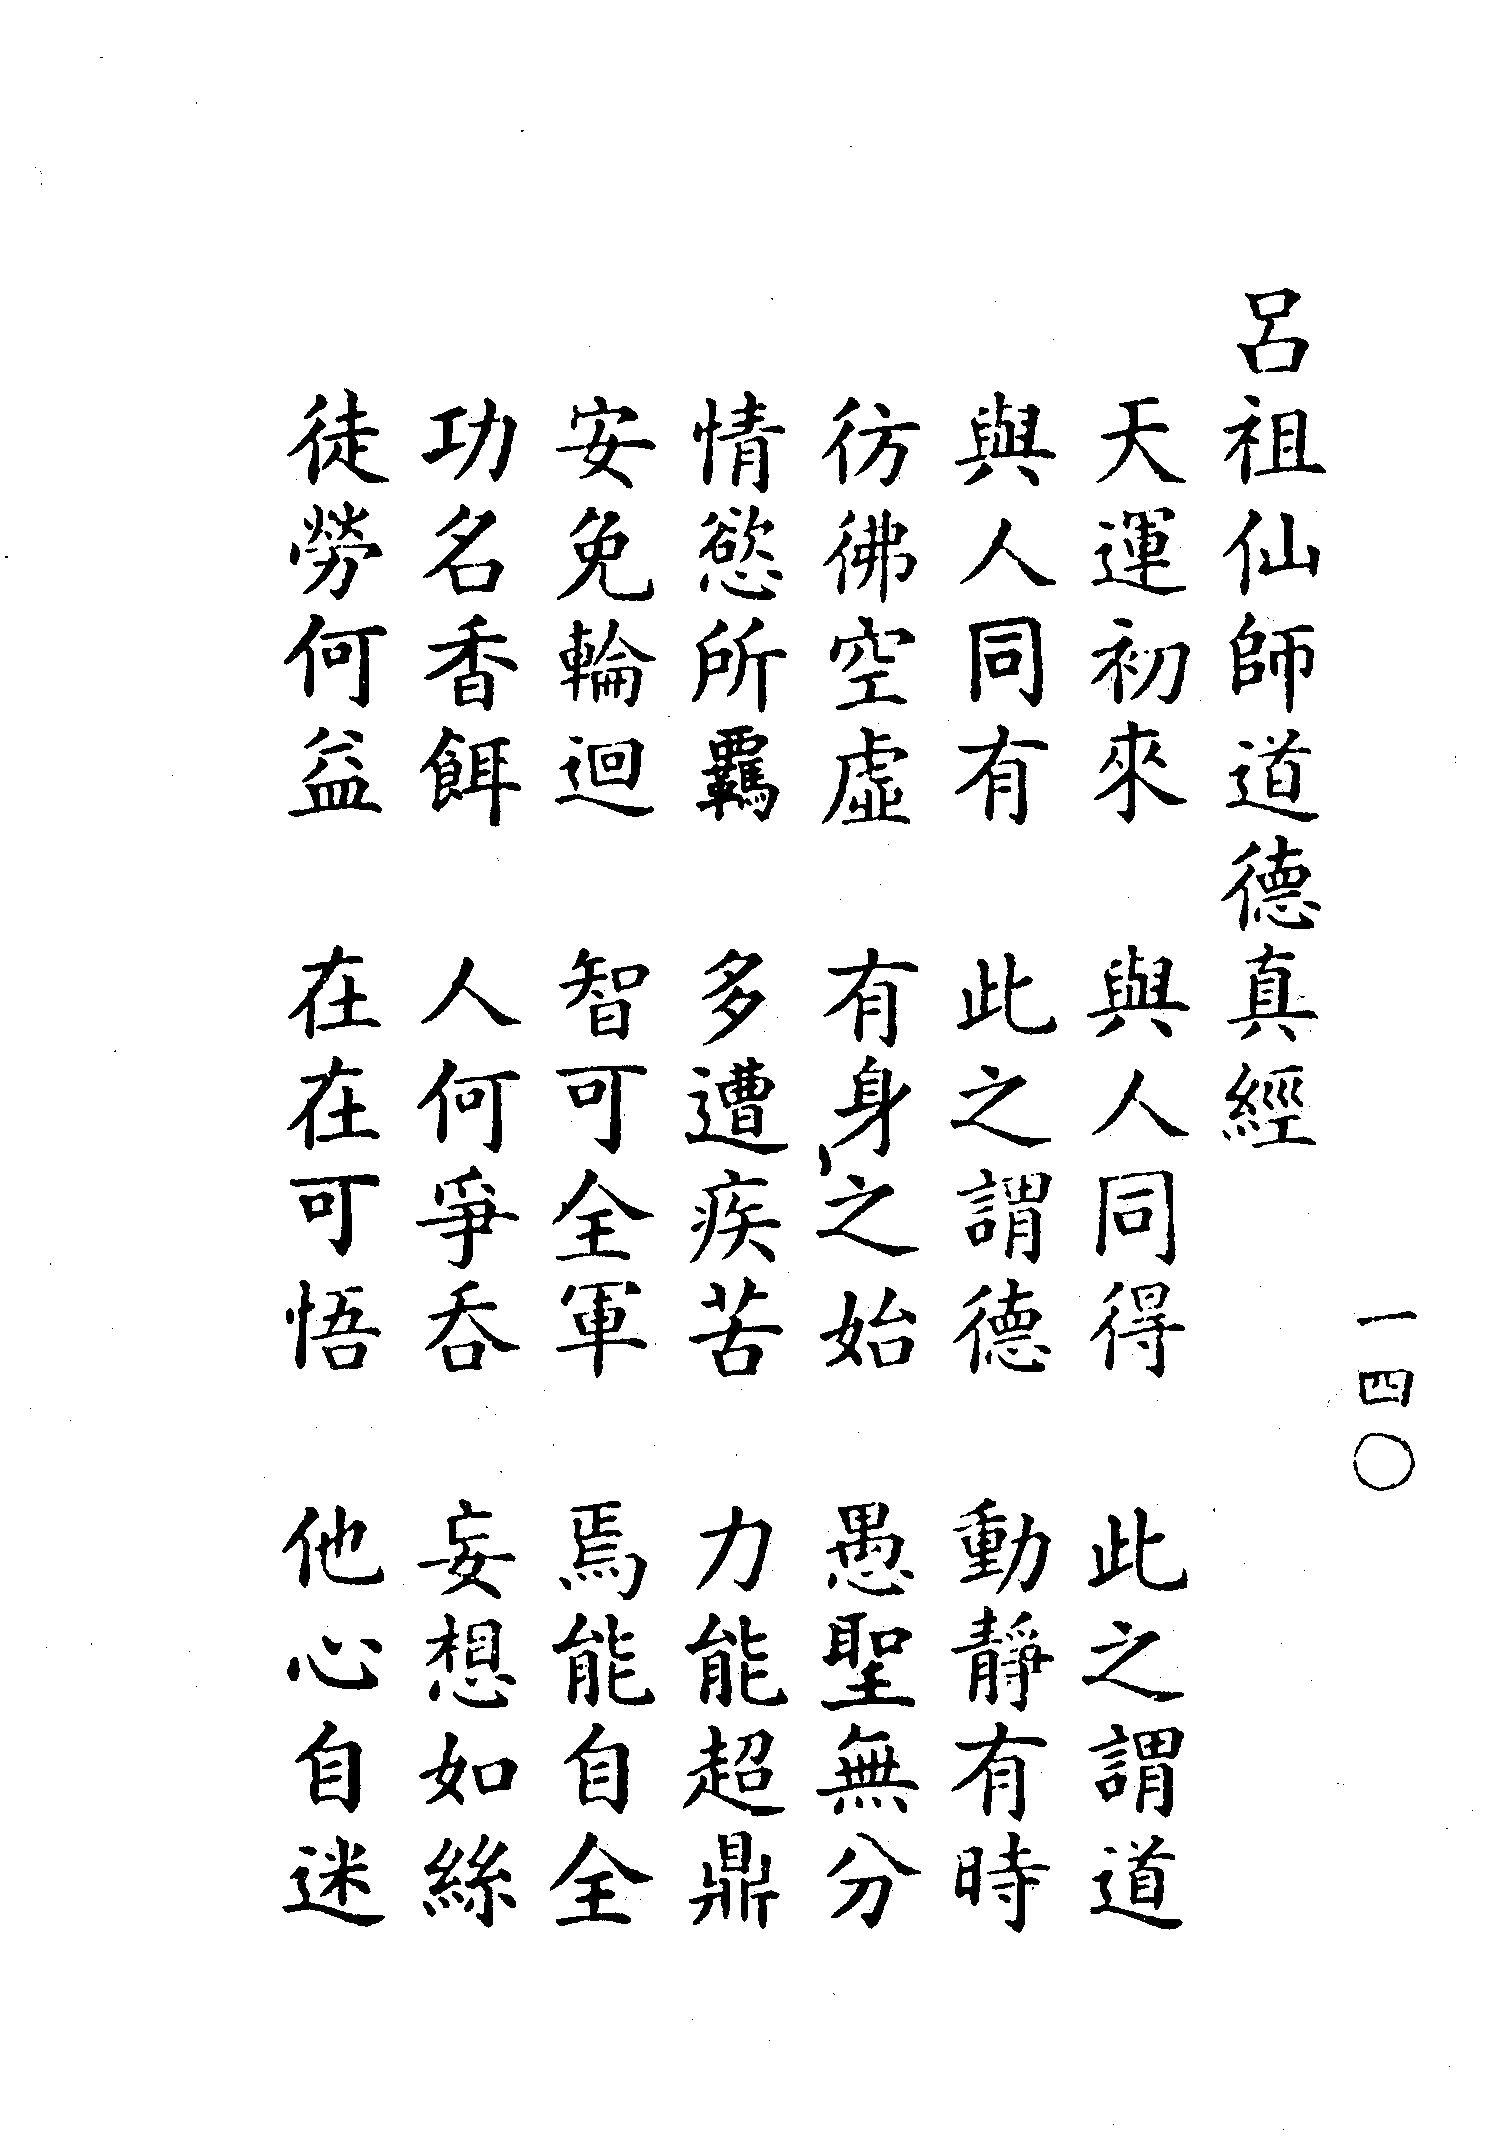 一四〇
呂祖仙師道德真經
天運初來　與人同得　此之謂道
與人同有　此之謂德　動靜有時
彷彿空虛　有身之始　愚聖無分
情慾所羈　多遭疾苦　力能超鼎
安免輪迴　智可全軍　焉能自全
功名香餌　人何爭吞　妄想如絲
徒勞何益　在在可悟　他心自迷